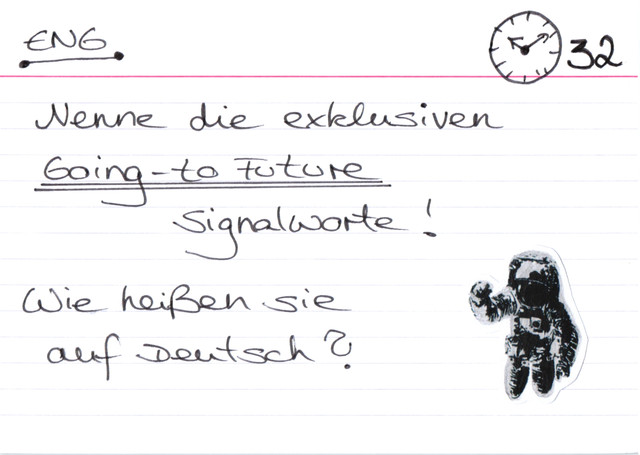 ENG
32
Nenne die exklusiven
Going-to Future
Signalworte!
Wie heißen sie
auf Deutsch?